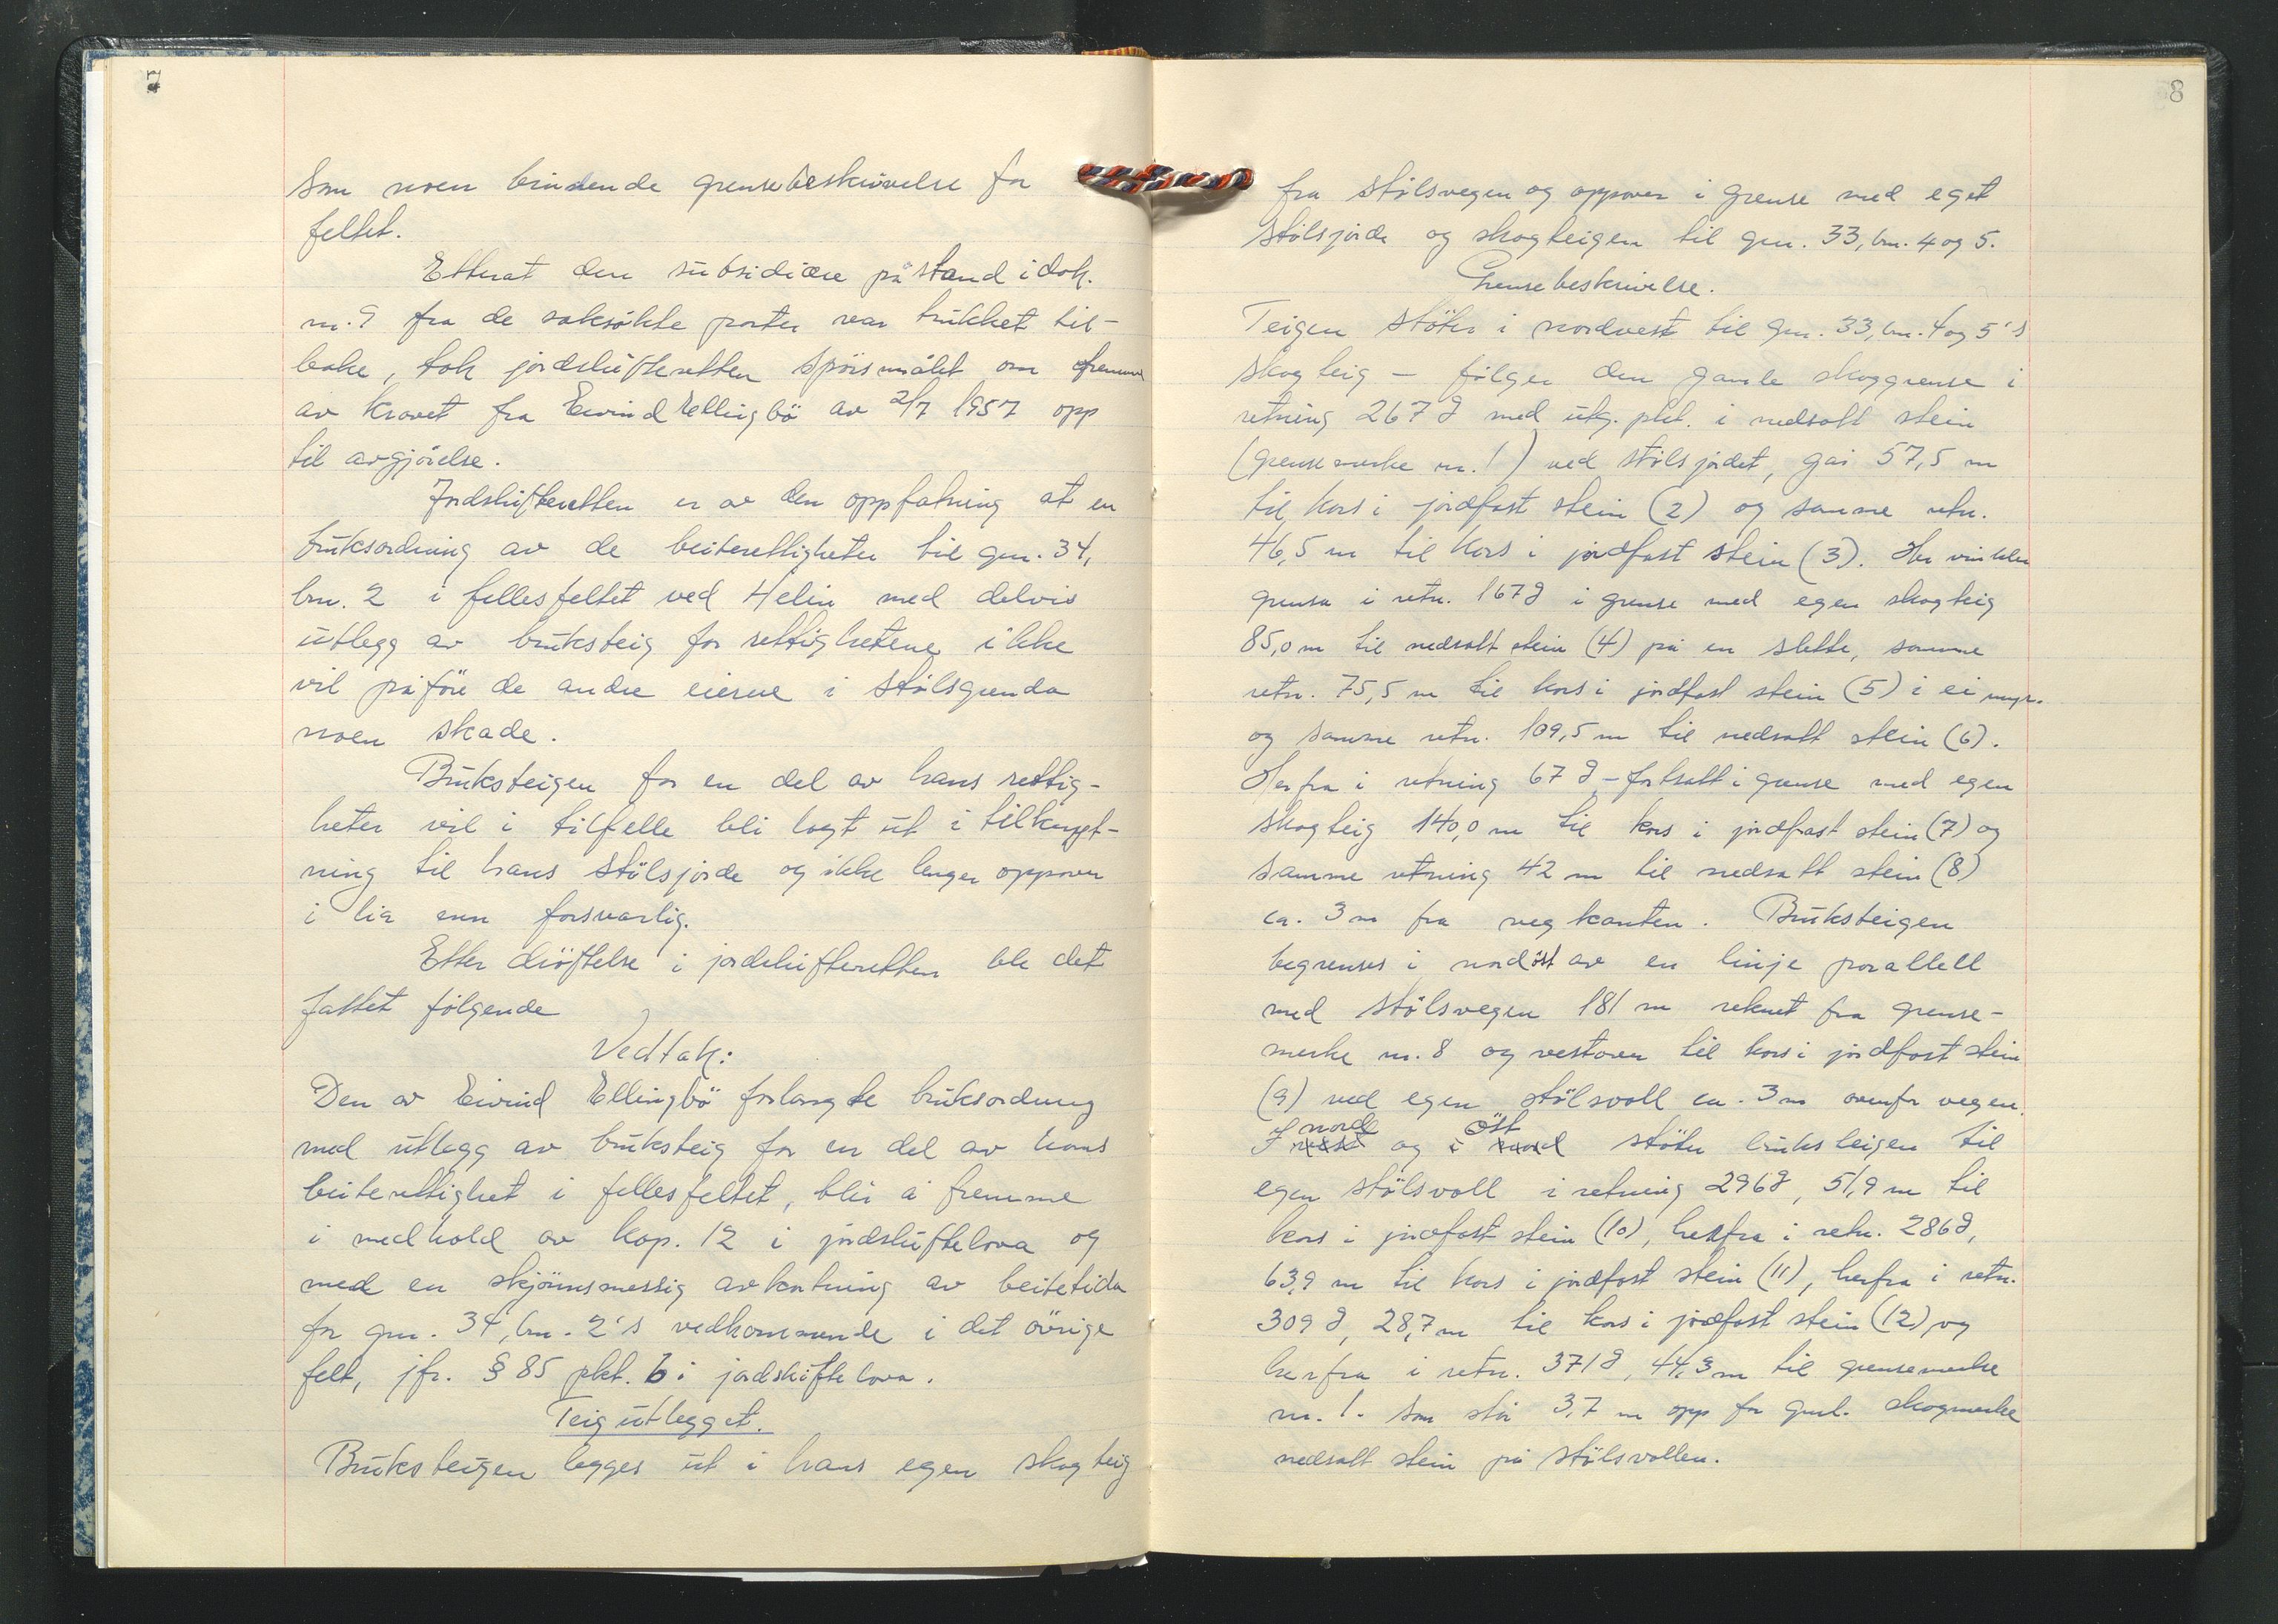 7
Som noen bindende grensebeskrivelse for
feltet.
Etterat den subsidiære påstand i dok.
nr. 9 fra de saksøkte parter var trukket til-
bake, tok jordskifteretten spörsmålet om fremme
av kravet fra Eivind Ellingbö av 2/7 1957 opp
til avgjörelse.
Jordskifteretten er av den oppfatning at en
bruksordning av de beiterettigheter til gnr. 34,
bnr. 2 i fellesfeltet ved Helin med delvis
utlegg av bruksteig for rettighetene ikke
vil påföre de andre eierne i stölsgrenda
noen skade.
Bruksteigen for en del av hans rettig-
heter vil i tilfelle bli lagt ut i tilknyt-
ning til hans stölsjorde og ikke lenger oppover
i lia enn forsvarlig.
Etter dröftelse i jordskifteretten ble det
fattet fölgende
Vedtak:
Den av Eivind Ellingbö forlangte bruksordning
med utlegg av bruksteig for en del av hans
beiterettighet i fellesfeltet, blir å fremme
i medhold av kap. 12 i jordskiftelova og
med en skjönnsmessig avkortning av beitetida
for gnr. 34, bnr. 2's vedkommende i det övrige
felt, jfr. § 85 pkt. 6 i jordskiftelova.
Teigutlegget.
Bruksteigen legges ut i hans egen skogteig
8
fra stölsvegen og oppover i grense med eget
stölsjorde og skogteigen til gnr. 33, bnr. 4 og 5.
Grensebeskrivelse.
Teigen stöter i nordvest til gnr. 33, bnr. 4 og 5's
skogteig – fölger den gamle skoggrense i
retning 267 g med utg. pkt. i nedsatt stein
(grensemerke nr. 1) ved stölsjordet, går 57,5 m
til kors i jordfast stein (2) og samme retn.
46,5 m til kors i jordfast stein (3). Her vinkler
grensa i retn. 167 g i grense med egen skogteig
85,0 m til nedsatt stein (4) på en slette, samme
retn. 75,5 m til kors i jordfast stein (5) i ei myr.
og samme retn. 109,5 m til nedsatt stein (6).
Herfra i retning 67 g – fortsatt i grense med egen
skogteig 140,0 m til kors i jordfast stein (7) og
samme retning 42 m til nedsatt stein (8)
ca. 3 m fra vegkanten. Bruksteigen
begrenses i nordöst av en linje parallell
med stölsvegen 181 m reknet fra grense-
merke nr. 8 og vestover til kors i jordfast stein
(9) ved egen stölsvoll ca. 3 m ovenfor vegen.
nord öst
I vest og i nord stöter bruksteigen til
egen stölsvoll i retning 296 g, 51,9 m til
kors i jordfast stein (10), herfra i retn. 286 g,
63,9 m til kors i jordfast stein (11), herfra i retn.
309 g, 28,7 m til kors i jordfast stein (12) og
herfra i retn. 371 g, 44,3 m til grensemerke
nr. 1. Som står 3,7 m opp for gml. skogmerke
nedsatt stein på stölsvollen.